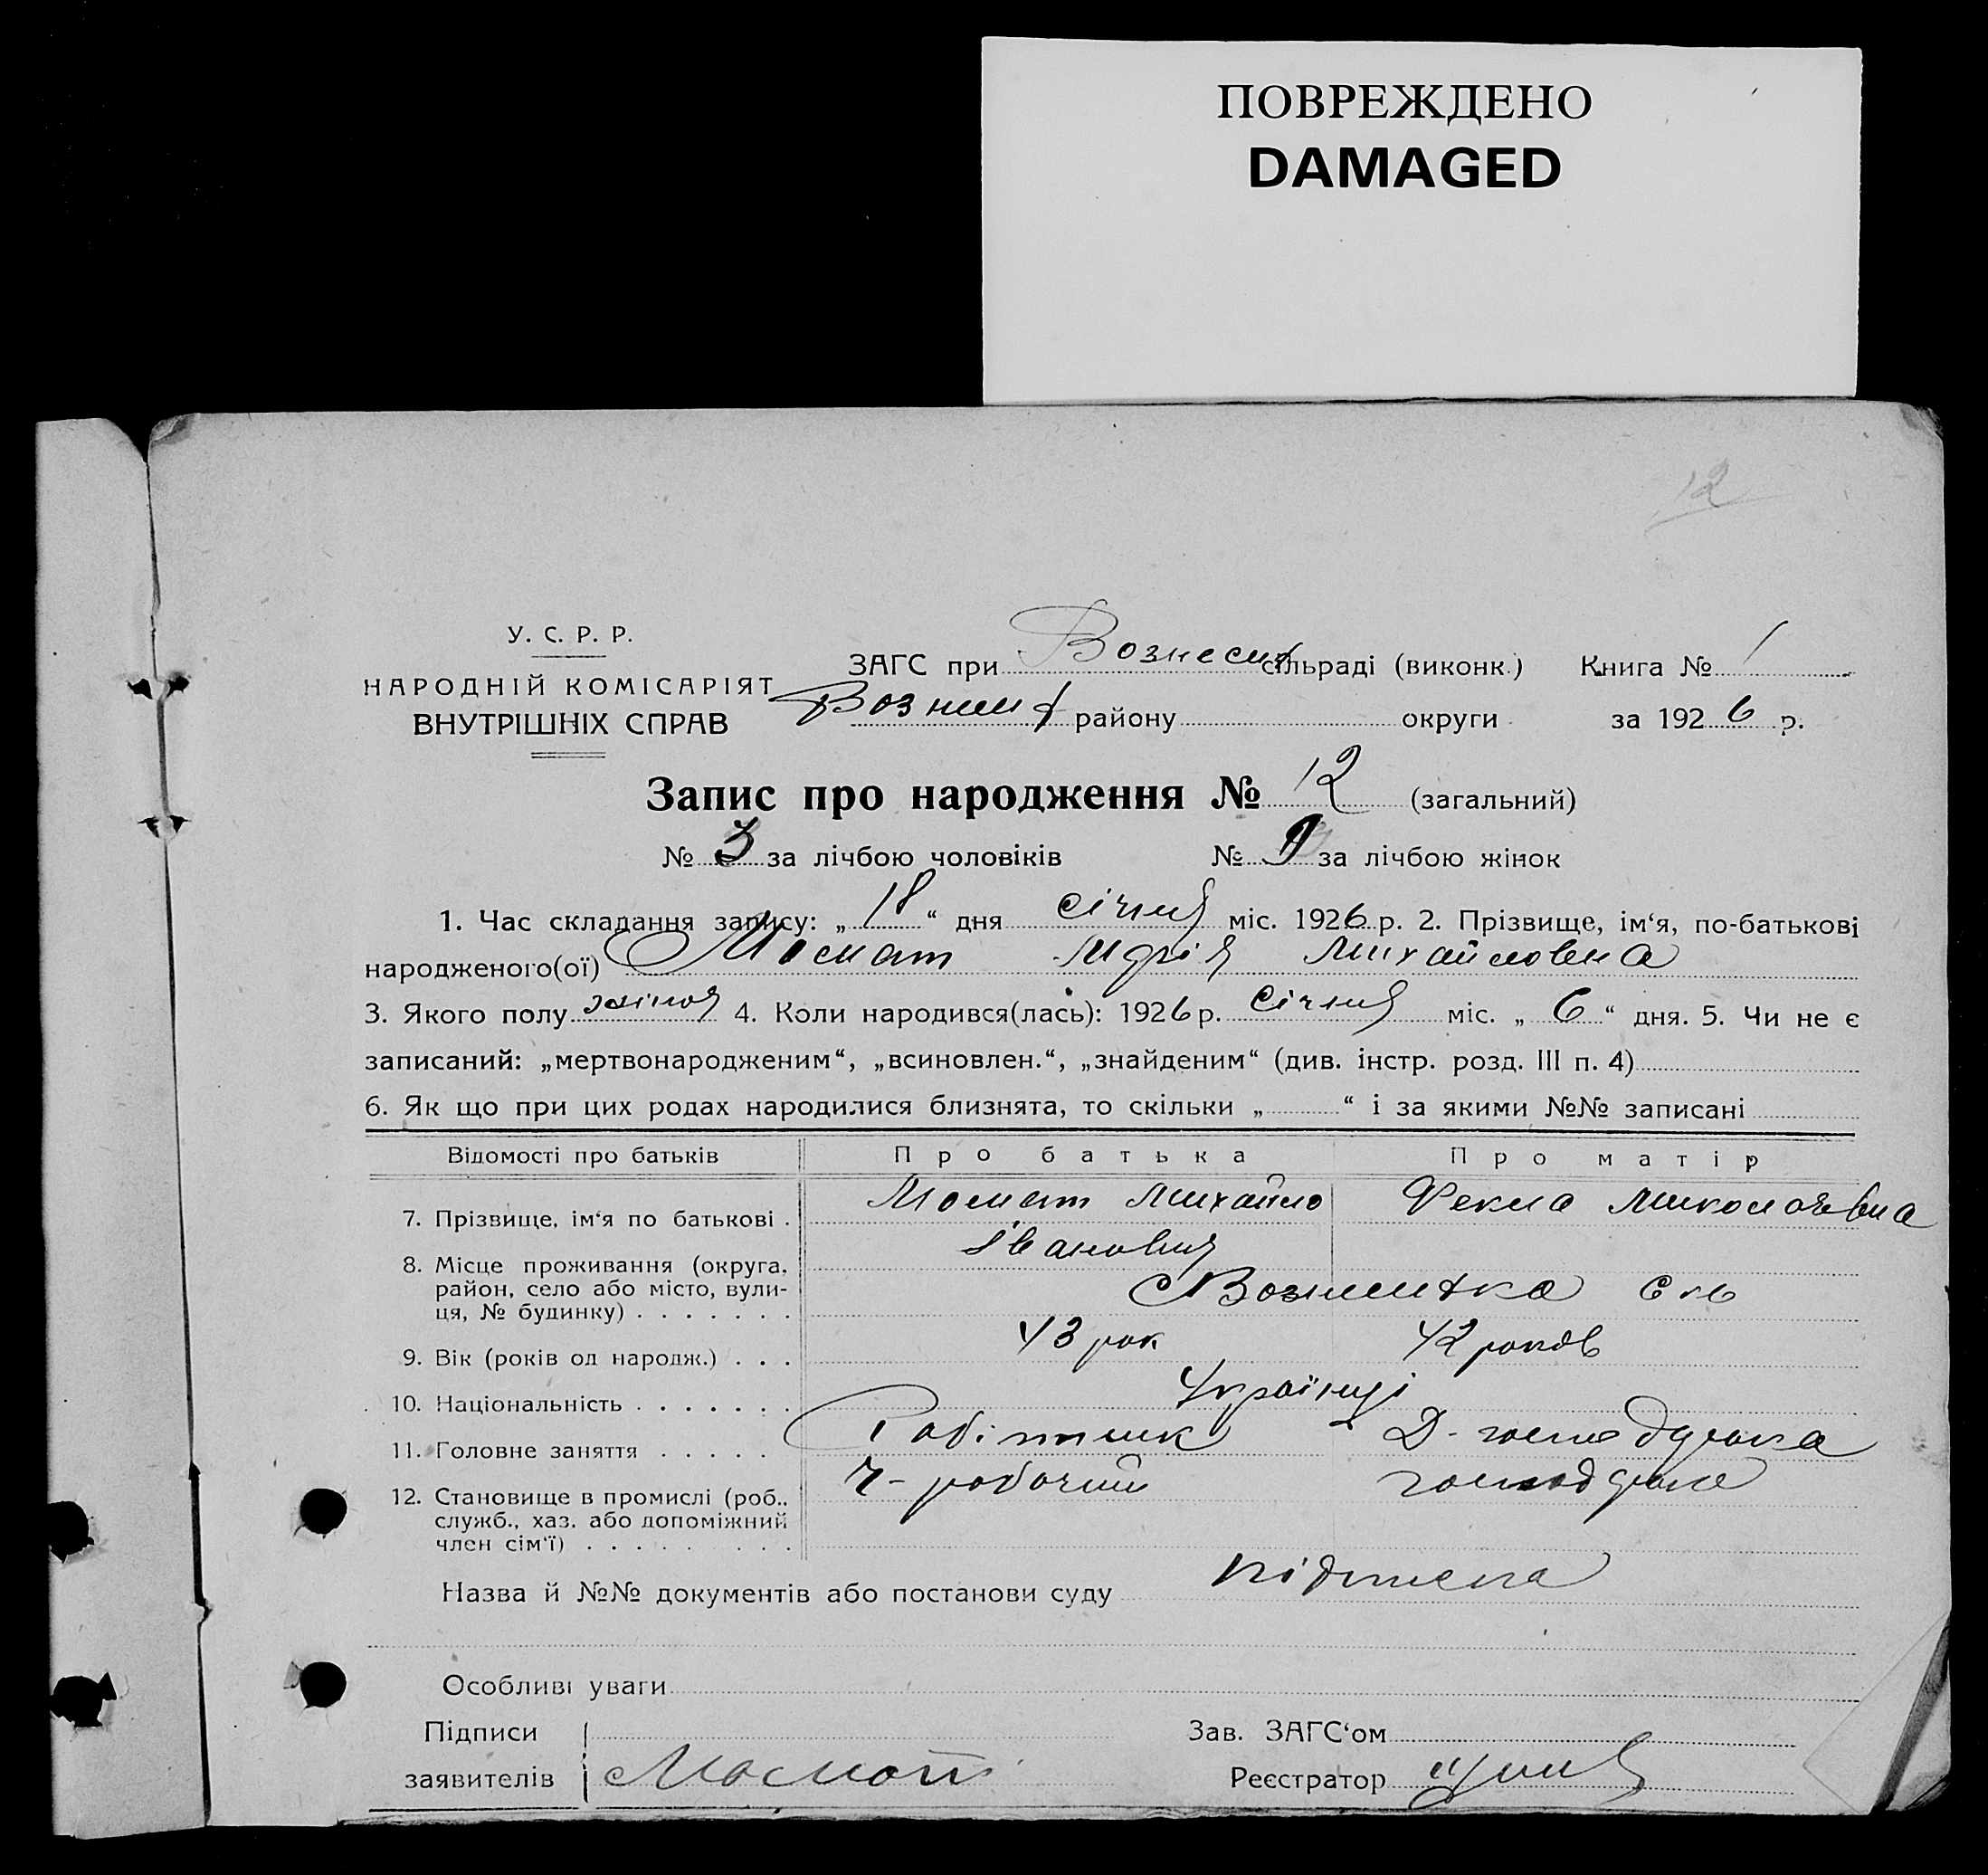 ПОВРЕЖДЕНО
DAMAGED
12
У. С. Р. Р.
НАРОДНІЙ КОМІСАРІЯТ
ВНУТРІШНІХ СПРАВ
ЗАГС при Вознесен сільраді (виконк.) Книга № 1
району округи за 1926 р.
Запис про народження № 12 (загальний)
№ 3 за лічбою чоловіків № 9 за лічбою жінок
1. Час складання запису: „18“ дня січня міс. 1926 р. 2. Прізвище, ім‘я, по-батькові
народженого(ої) Момот Марія Михайловна
3. Якого полу жіноч 4. Коли народився(лась): 1926 р. Січня міс. „6“ дня. 5. Чи не є
записаний: „мертвонародженим“, „всиновлен.“, „знайденим“ (див. інстр. розд. III п. 4)
6. Як що при цих родах народилися близнята, то скільки „ “ і за якими №№ записані
Відомості про батьків Про батька Про матір
7. Прізвище, ім‘я по батькові . Момот Михайло Фекла Миколаевна
Іванович
8. Місце проживання (округа,
район, село або місто, вули-
ця, № будинку) . . . . . . .
9. Вік (років од народж.) . . . 43 рок 42 років
10. Національність . . . . . . . Українці
11. Головне заняття . . . . . Робітник Д-господарка
12. Становище в промислі (роб., Ч-робочий господарка
служб., хаз. або допоміжний
член сім‘ї) . . . . . . . .
Назва й №№ документів або постанови суду підписка
Особливі уваги
Підписи Зав. ЗАГС‘ом
заявителів Момот Реєстратор